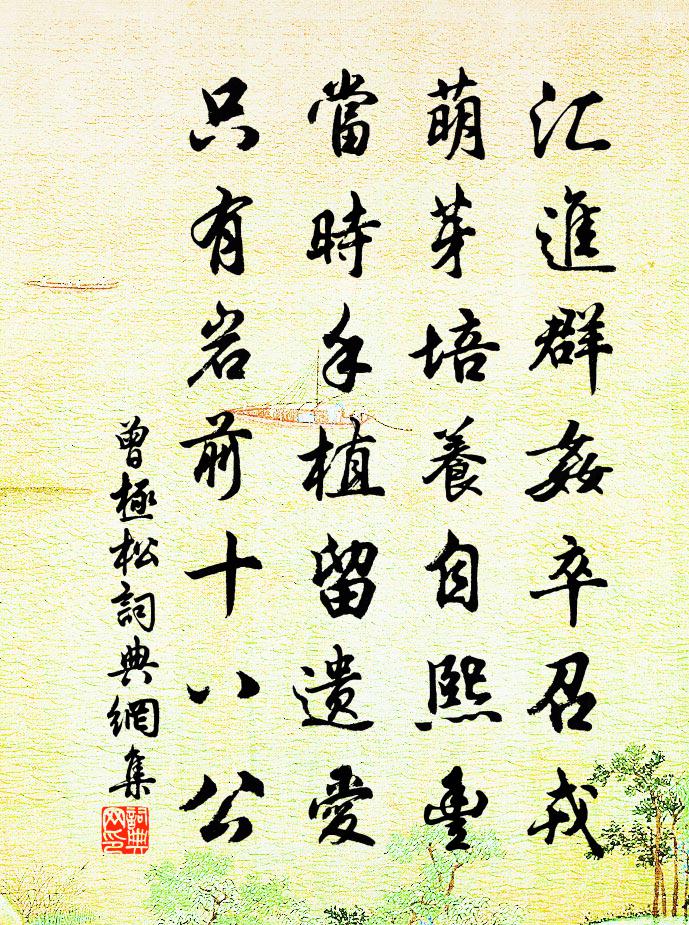 汇進群姦卒召戎
萌芽培養自熙豐
當時手植留遺愛
只有岩前十八公
曾極松詞典網集
詞典網印